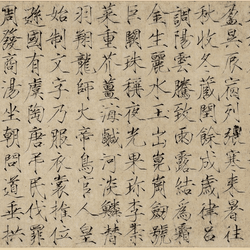 盈昃辰宿列張寒來暑往
秋收冬藏閏餘成歲律呂
調陽雲騰致雨露結為霜
金生麗水玉出崑岡劍號
巨闕珠稱夜光果珍李柰
菜重芥薑海鹹河淡鱗潛
羽翔龍師火帝鳥官人皇
始制文字乃服衣裳推位
遜國有虞陶唐弔民伐罪
周發商湯坐朝問道垂拱